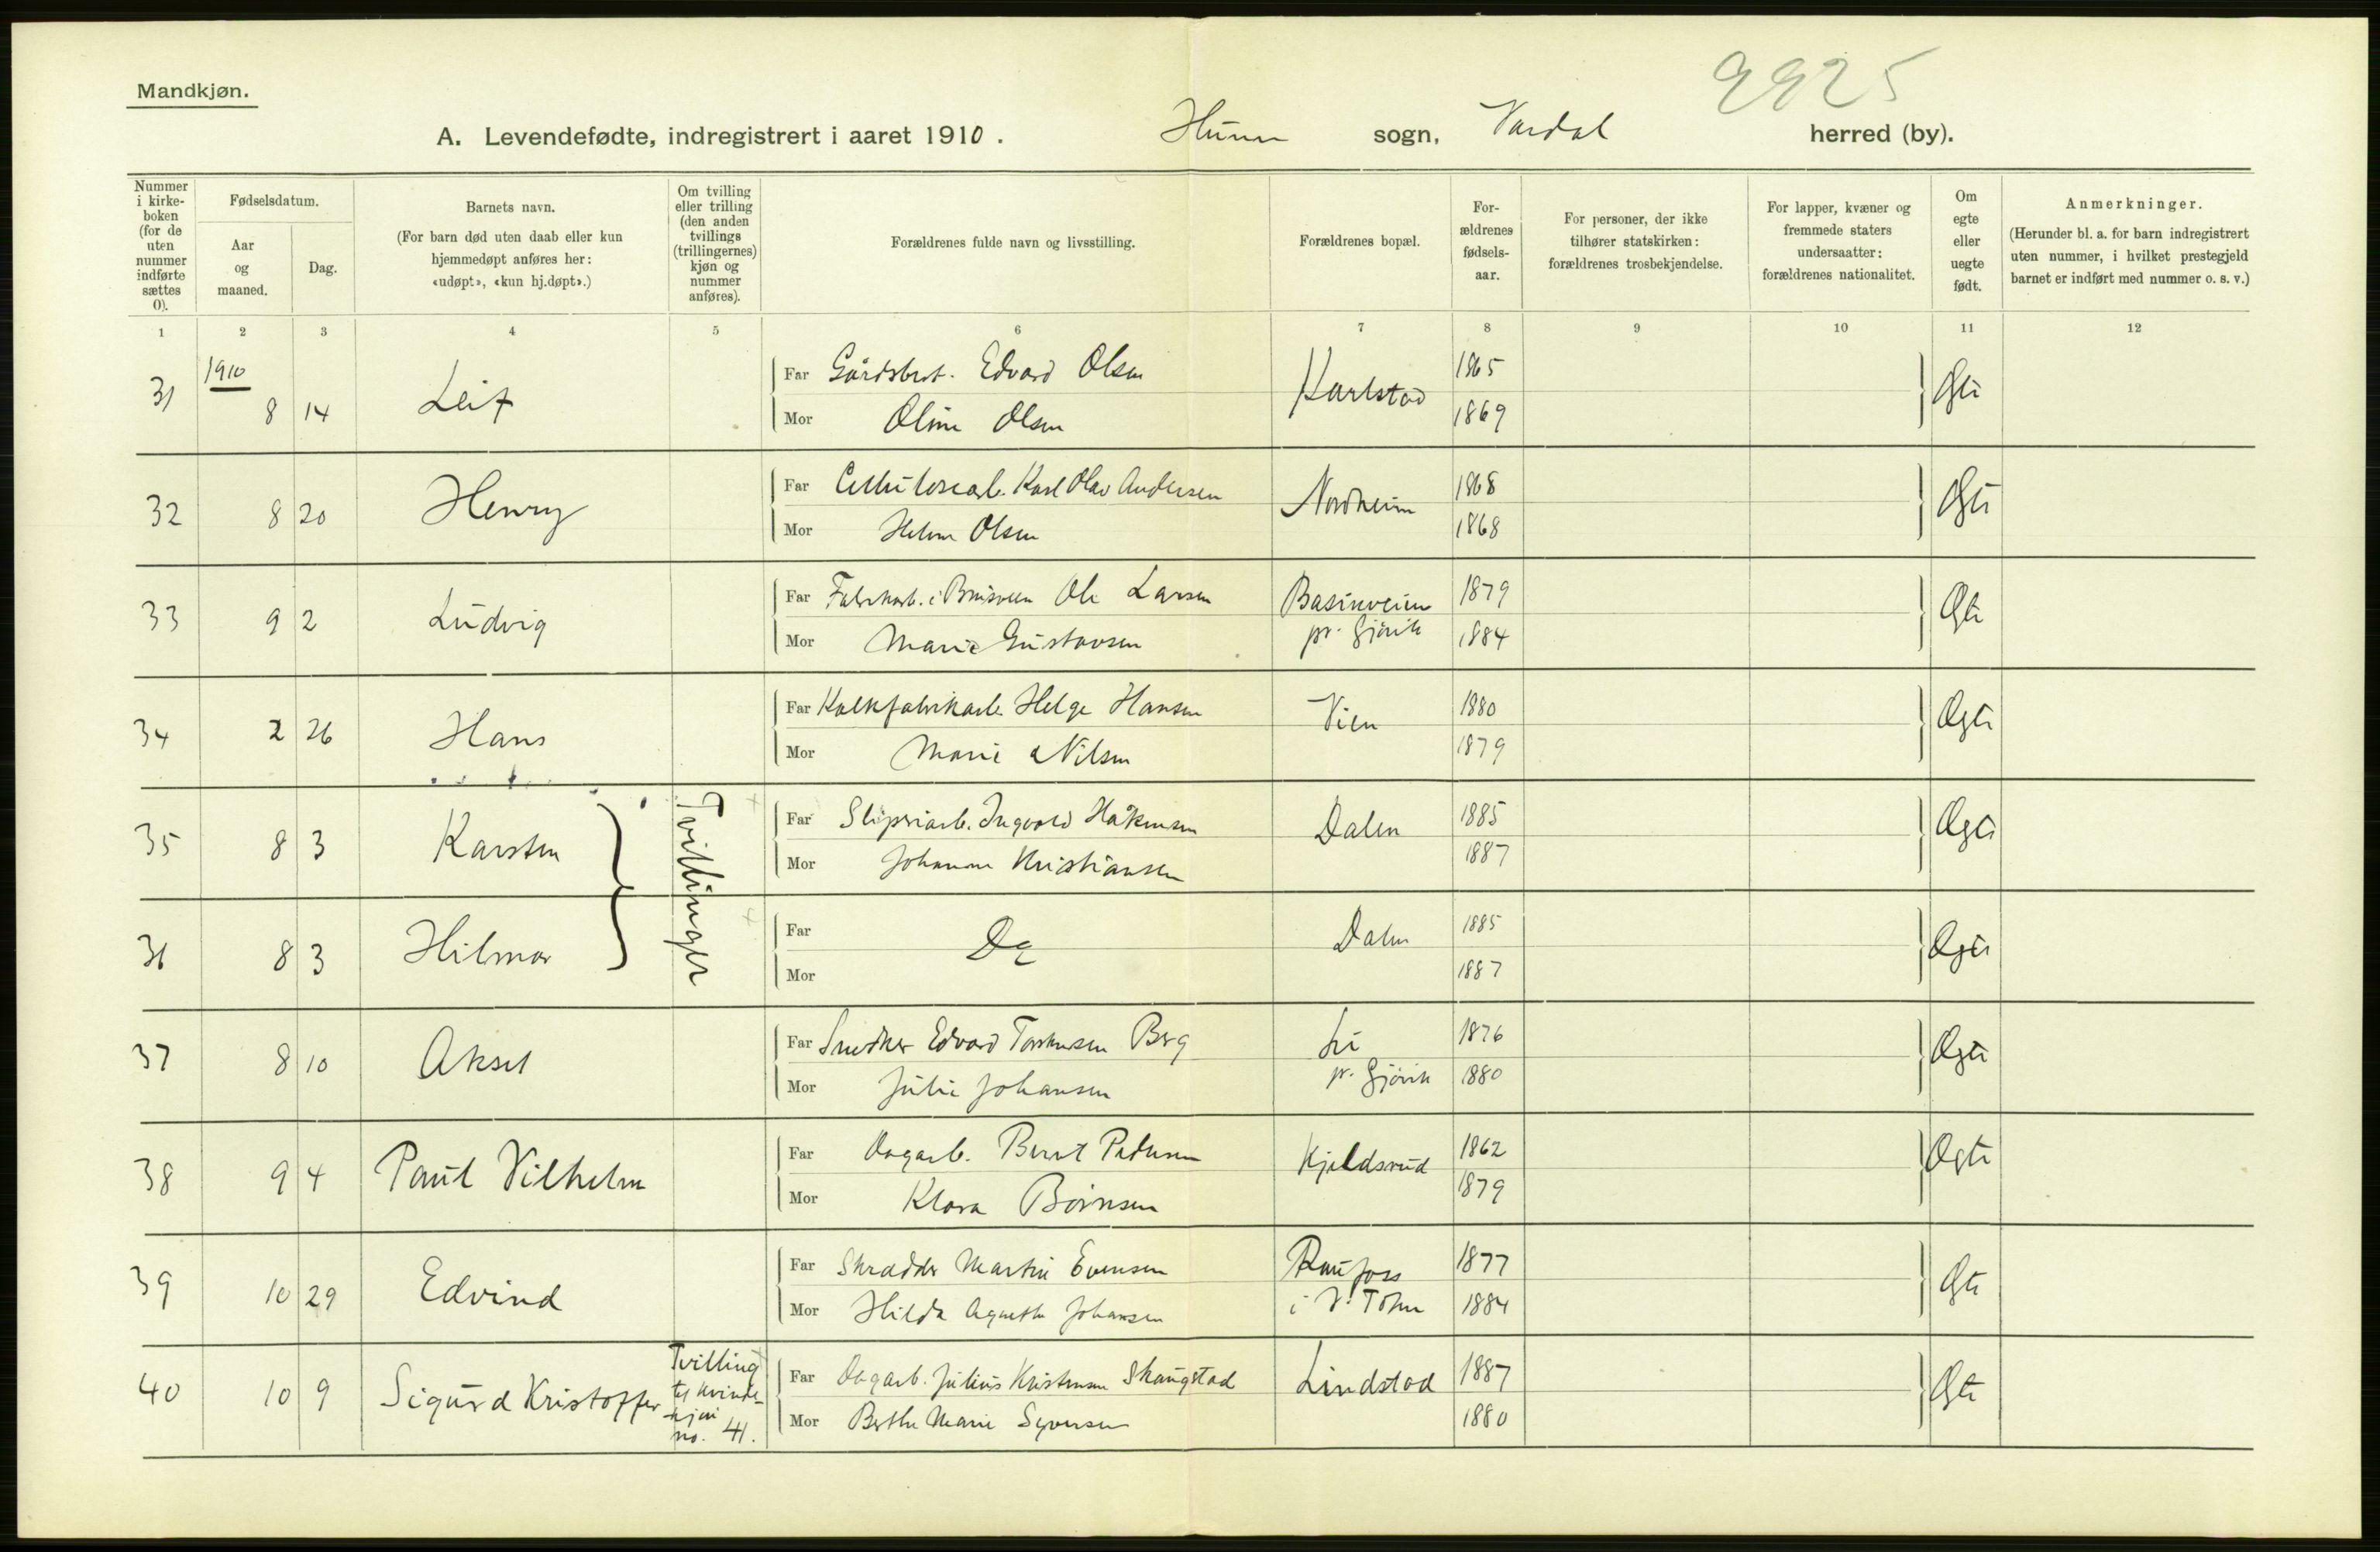 9925
Mandkjøn.
A. Levendefødte, indregistrert i aaret 1910. Hunn sogn, Vardal herred (by).
Nummer i kirkeboken (for de uten nummer indførte sættes 0).
Fødselsdatum.
Aar og maaned.
Dag.
Barnets navn.
(For barn død uten daab eller kun hjemmedøpt anføres her: «udøpt», «kun hj.døpt».)
Om tvilling eller trilling (den anden tvillings (trillingernes) kjøn og nummer anføres).
Forældrenes fulde navn og livsstilling.
Forældrenes bopæl.
Forældrenes fødselsaar.
For personer, der ikke tilhører statskirken: forældrenes trosbekjendelse.
For lapper, kvæner og fremmede staters undersaatter: forældrenes nationalitet.
Om egte eller uegte født.
Anmerkninger.
(Herunder bl. a. for barn indregistrert uten nummer, i hvilket prestegjeld barnet er indført med nummer o. s. v.)
1 2 3 4 5 6 7 8 9 10 11 12
1910
31 8 14 Leif Far Gårdsbest. Edvard Olsen Karlstad 1865 Egte
Mor Oline Olsen 1869
32 8 20 Henry Far Cellulosearb. Karl Olav Andersen Nordheim 1868 Egte
Mor Helene Olsen 1868
33 9 2 Ludvig Far Fabrikarb. i Ole Larsen 1879 Egte
Mor Marie Gustavsen pr. Gjövik 1884
34 2 26 Hans Far Kalkfabrikarb. Helge Hansen Vien 1880 Ægte
Mor Marie Nilsen 1879
35 8 3 Karsten Tvillinger Far Sliperiarb. Ingvald Håkensen Dalen 1885 Ægte
Mor Johanne Kristiansen 1887
36 8 3 Hilmar Far Do Dalen 1885 Ægte
Mor 1887
37 8 10 Aksel Far Snedker Edvard Torstensen Berg Li 1876 Ægte
Mor Julie Johansen pr. Gjövik 1880
38 9 4 Paul Vilhelm Far Dagarb. Bernt Pedersen Kjeldsrud 1862 Ægte
Mor Klara Börnsen 1879
39 10 29 Edvind Far Skrædder Martin Evensen Raufoss 1877 Egte
Mor Hilda Agnethe Johansen i V. Toten 1884
40 10 9 Sigurd Kristoffer Tvilling til kvindekjön no. 41. Far Dagarb. Julius Kristensen Skaugstad Lindstad 1887 Egte
Mor Berthe Marie Syversen 1880